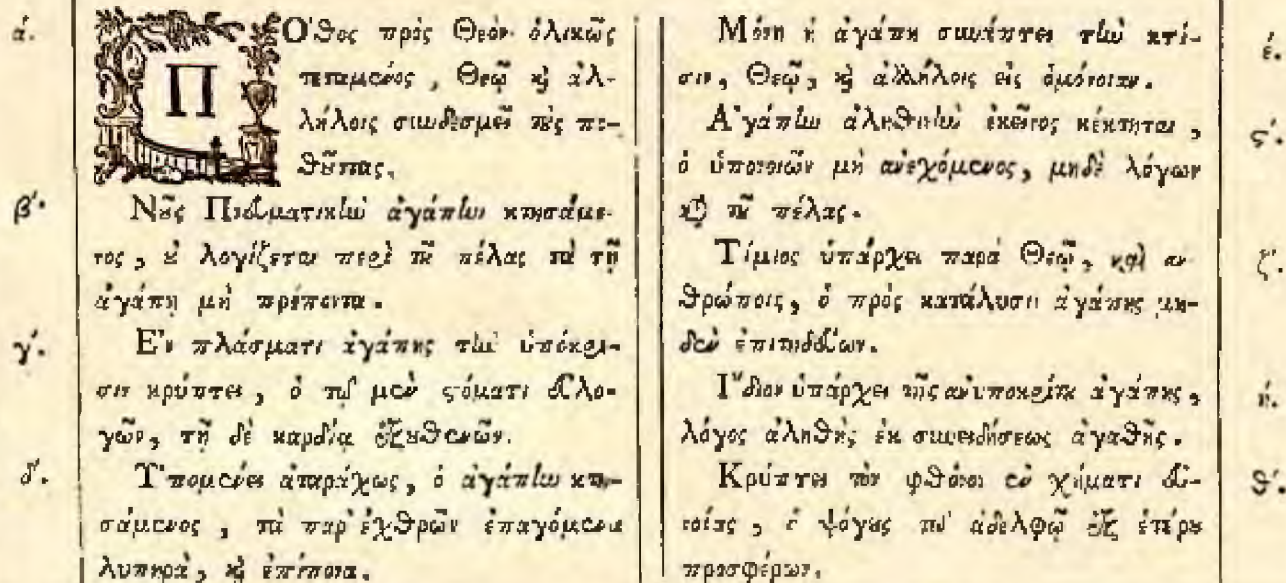 ά.
ΠΟʹθος πρὸς Θεὸν ὁλικῶς
τεταμένος, Θεῷ καὶ ἀλ-
λήλοις συνδεσμεῖ τοὺς πο-
θοῦντας.
β΄.
Νοῦς Πνευματικὴν ἀγάπην κτησάμε-
νος, οὐ λογίζεται περὶ τοῦ πέλας τὰ τῇ
ἀγάπῃ μὴ πρέποντα.
γ΄.
Ἐν πλάσματι ἀγάπης τὴν ὑπόκρι-
σιν κρύπτει, ὁ τῷ μὲν στόματι εὐλο-
γῶν, τῇ δὲ καρδίᾳ ἐξουθενῶν.
δ΄.
Ὑπομένει ἀταράχως, ὁ ἀγάπην κτη-
σάμενος, τὰ παρ' ἐχθρῶν ἐπαγόμενα
λυπηρὰ, καὶ ἐπίπονα.
έ.
Μόνη ἡ ἀγάπη συνάπτει τὴν κτί-
σιν, Θεῷ, καὶ ἀλλήλοις εἰς ὁμόνοιαν.
ϛ΄.
Ἀγάπην ἀληθινὴν ἐκεῖνος κέκτηται,
ὁ ὑπονοιῶν μὴ ἀνεχόμενος, μηδὲ λόγων
κατὰ τοῦ πέλας.
ζ΄.
Τίμιος ὑπάρχει παρὰ Θεῷ, καὶ ἀν
θρώποις, ὁ πρὸς κατάλυσιν ἀγάπης μη-
δὲν ἐπιτηδεύων.
ή.
Ἴδιον ὑπάρχει τῆς ἀνυποκρίτου ἀγάπης,
λόγος ἀληθὴς ἐκ συνειδήσεως ἀγαθῆς.
θ΄.
Κρύπτει τὸν φθόνον ἐν χήματι εὐ-
νοίας, ὁ ψόγους τῷ ἀδελφῷ ἐξ ἑτέρου
προσφέρων.